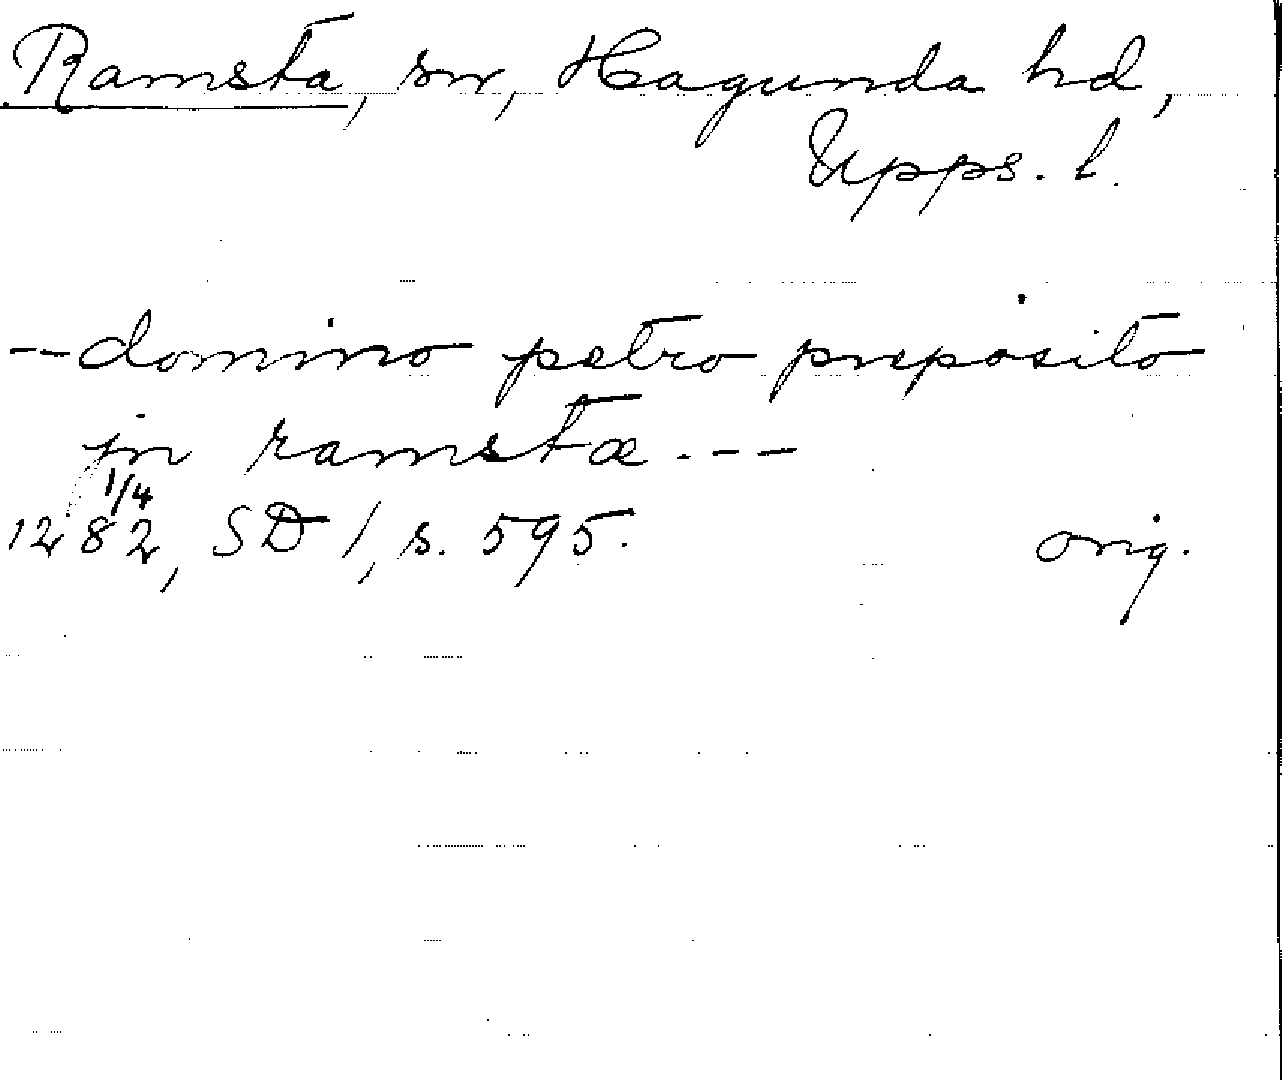 Ramsta, sn, Hagunda hd,
Upps. l.
-- domino petro preposito
jn ramstæ ---
1282 1/4, SD 1, s. 595. orig.